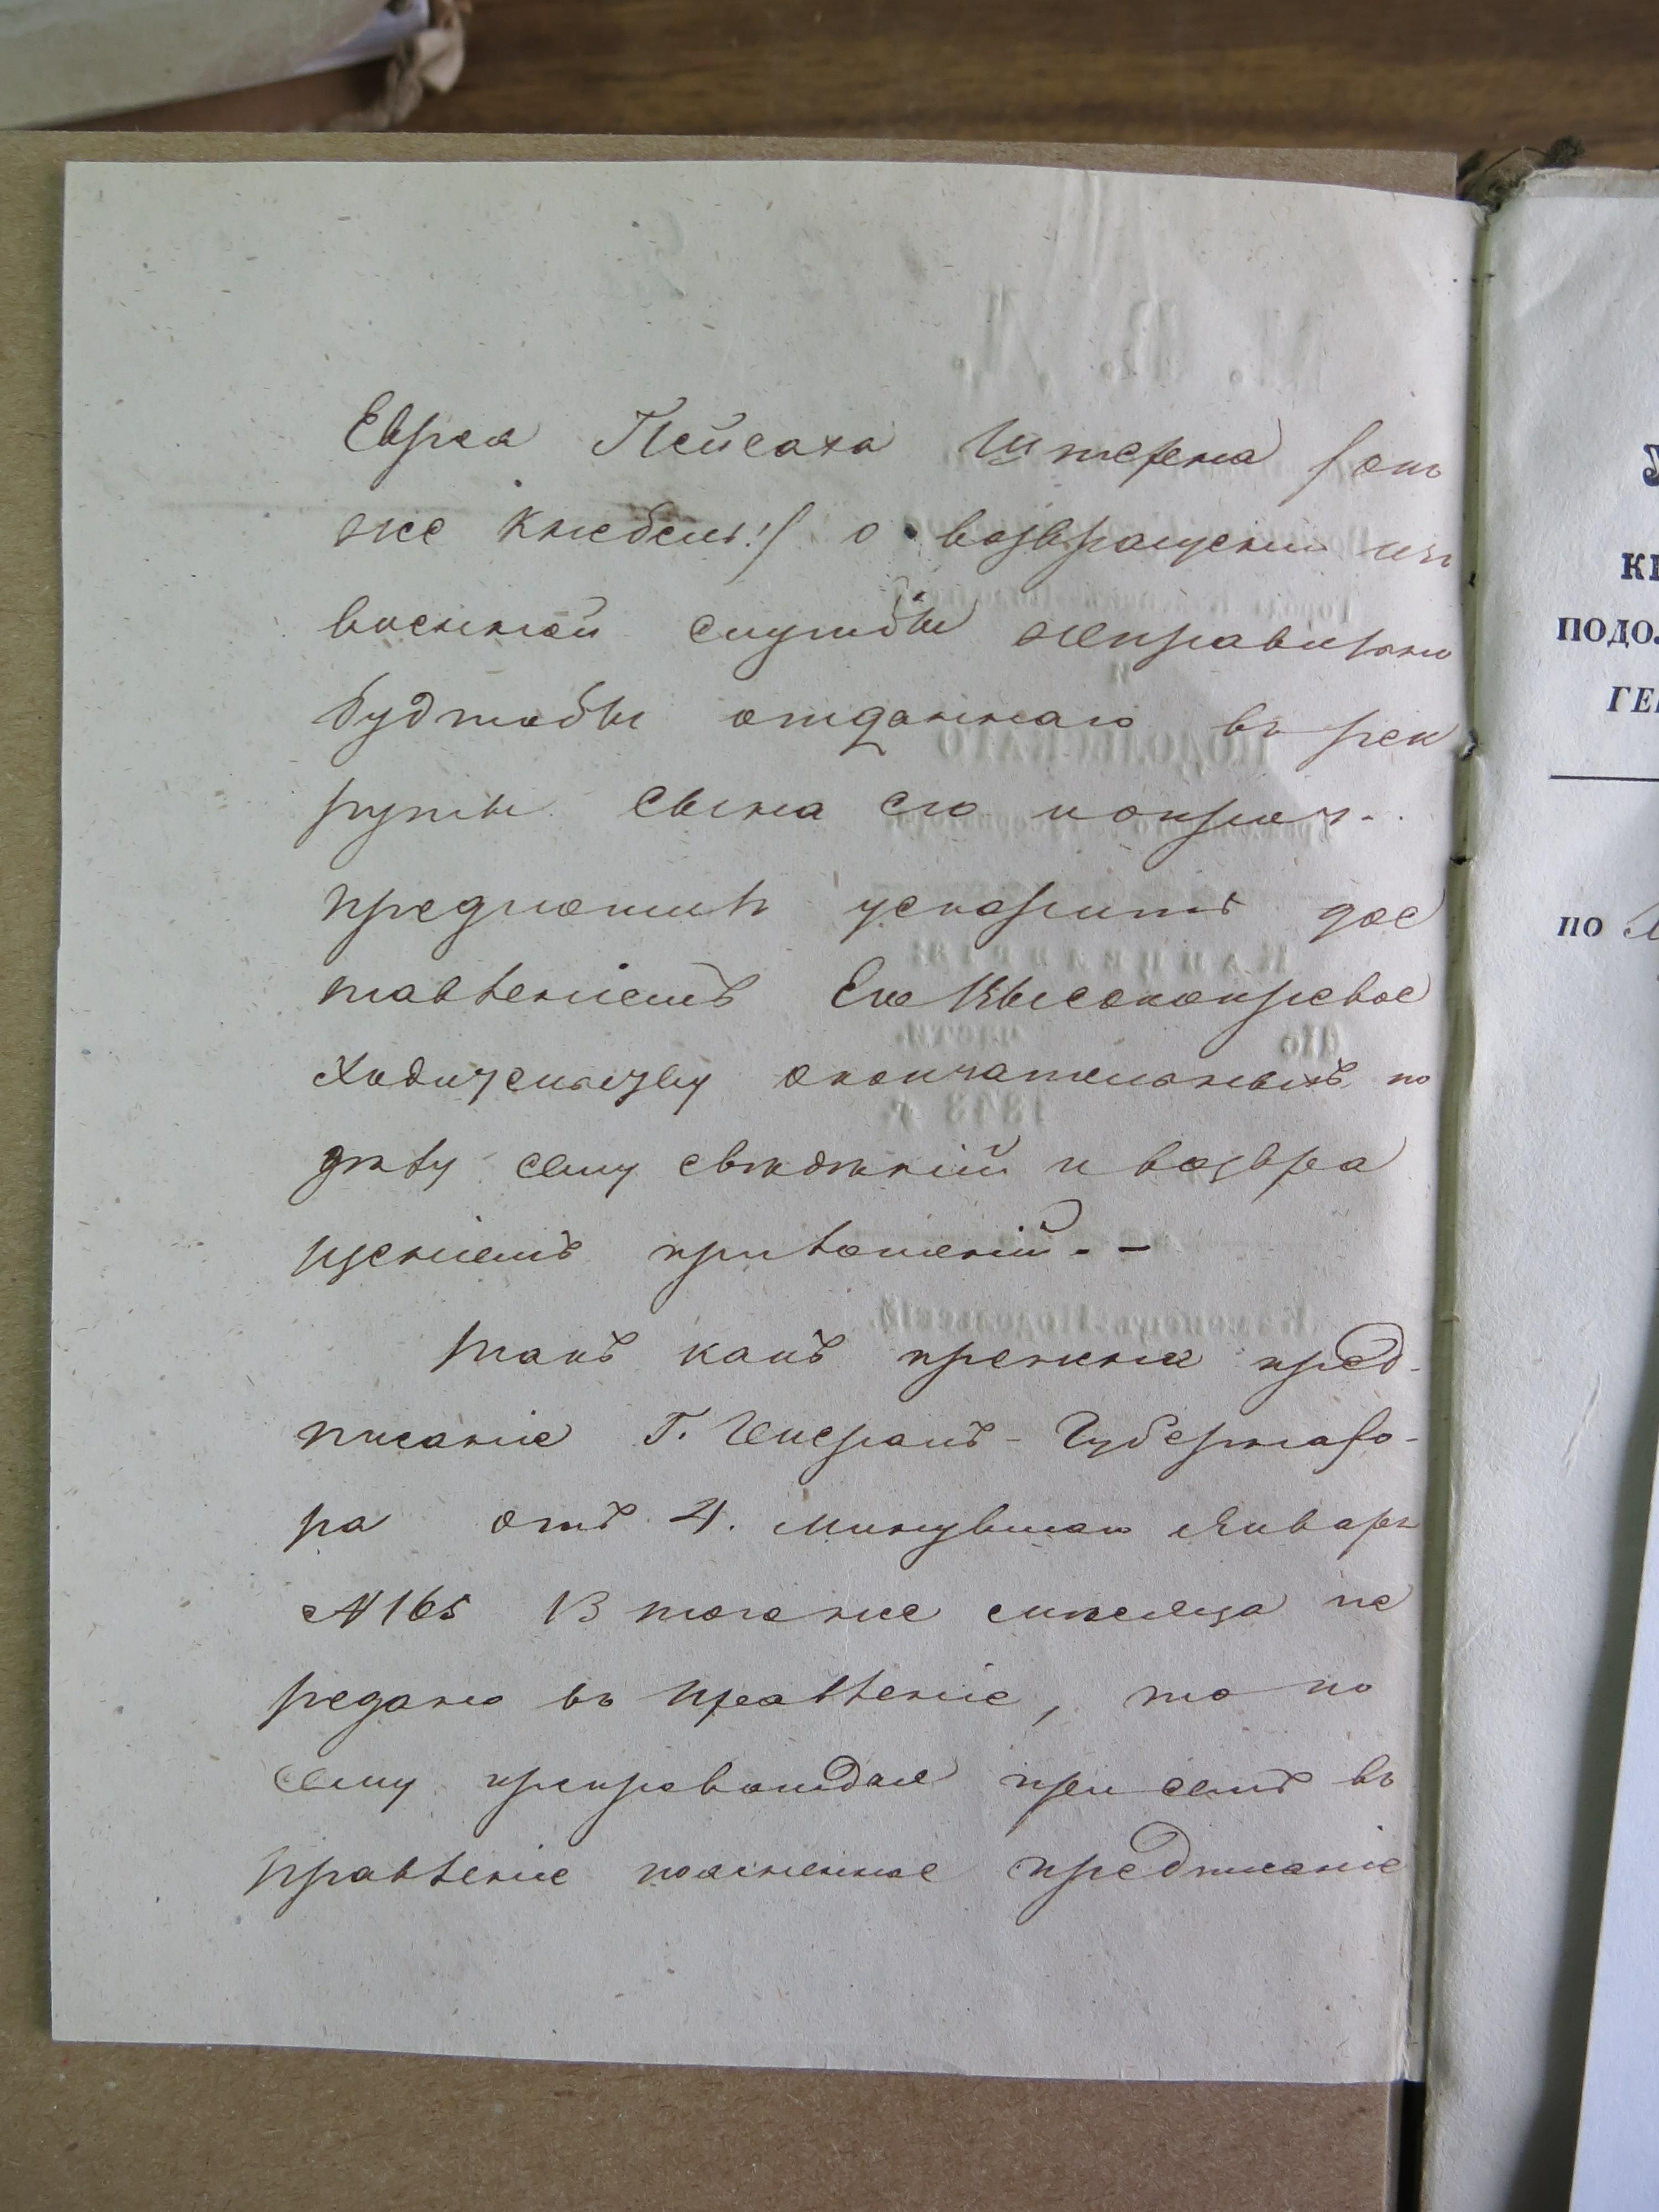 Еврея Пейсаха Штерна /онъ
же Кнебель!/ о возвращеніи изъ
военной службы неправильно
будтобы отданнаго въ рек
руты сына его и проч..
предложить ускорить дос
тавленіемъ Его Высокопревос
ходительству окончательныхъ по
дѣлу сему свѣдѣній и возвра
щеніемъ приложеній. -
Такъ какъ прежнее пред-
писаніе Г. Генералъ-Губернато-
ра отъ 4. минувшаго Января
№ 165 В тогоже мѣсяца пе
редано въ Правленіе, то по
сему препровождая при семъ въ
Правленіе поясненное предписаніе
У
КІ
ПОДОЛ
ГЕ
по